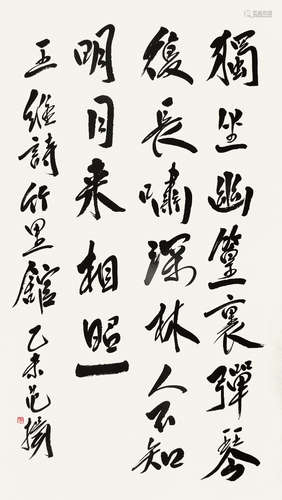 獨坐幽篁裏彈琴
復長嘯深林人不知
明月来相照
王維詩竹里館乙未范揚